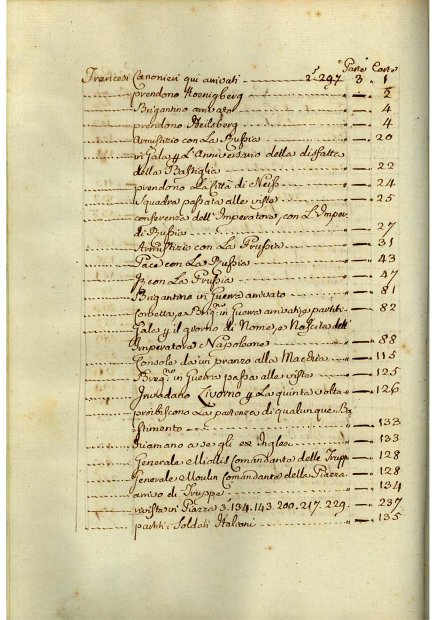 Parte Carte
Francesi Canonieri qui arrivati 2. 297 3. 1
prendono Koenigberg 2
Brigantino arrivato 4
prendono Heilsberg 4
Armistizio con La Russia 20
in Gala y L'Anniversario della disfatta
della Bastiglia 22
prendono La Città di Neiss 24
Squadra passata alle viste 25
conferenza dell'Imperatore, con L'Imper.
di Russia 27
Armistizio con La Prussia 31
Pace con La Russia 43
con La Prussia 47
Brigantino in Guerra arrivato 81
Corbetta, e in Guerra arrivati, e partiti 82
Gala y il giorno di Nome, e Nascita dell'
Imperatore Napoleone 88
Console da un pranzo alla Maedita 115
in Guerra passa alle viste 125
Invadano Livorno y La quinta volta 126
proibiscono La partenza di qualunque Ba
stimento 133
richiamano a se gli ex Inglesi 133
Generale Miollis Comandante delle Trupp 128
Generale Moulin Comandante della Piazza 128
arrivo di Truppe 134
rivista in Piazza 3. 134. 143. 200. 217. 229. 237
partiti Soldati Italiani 135